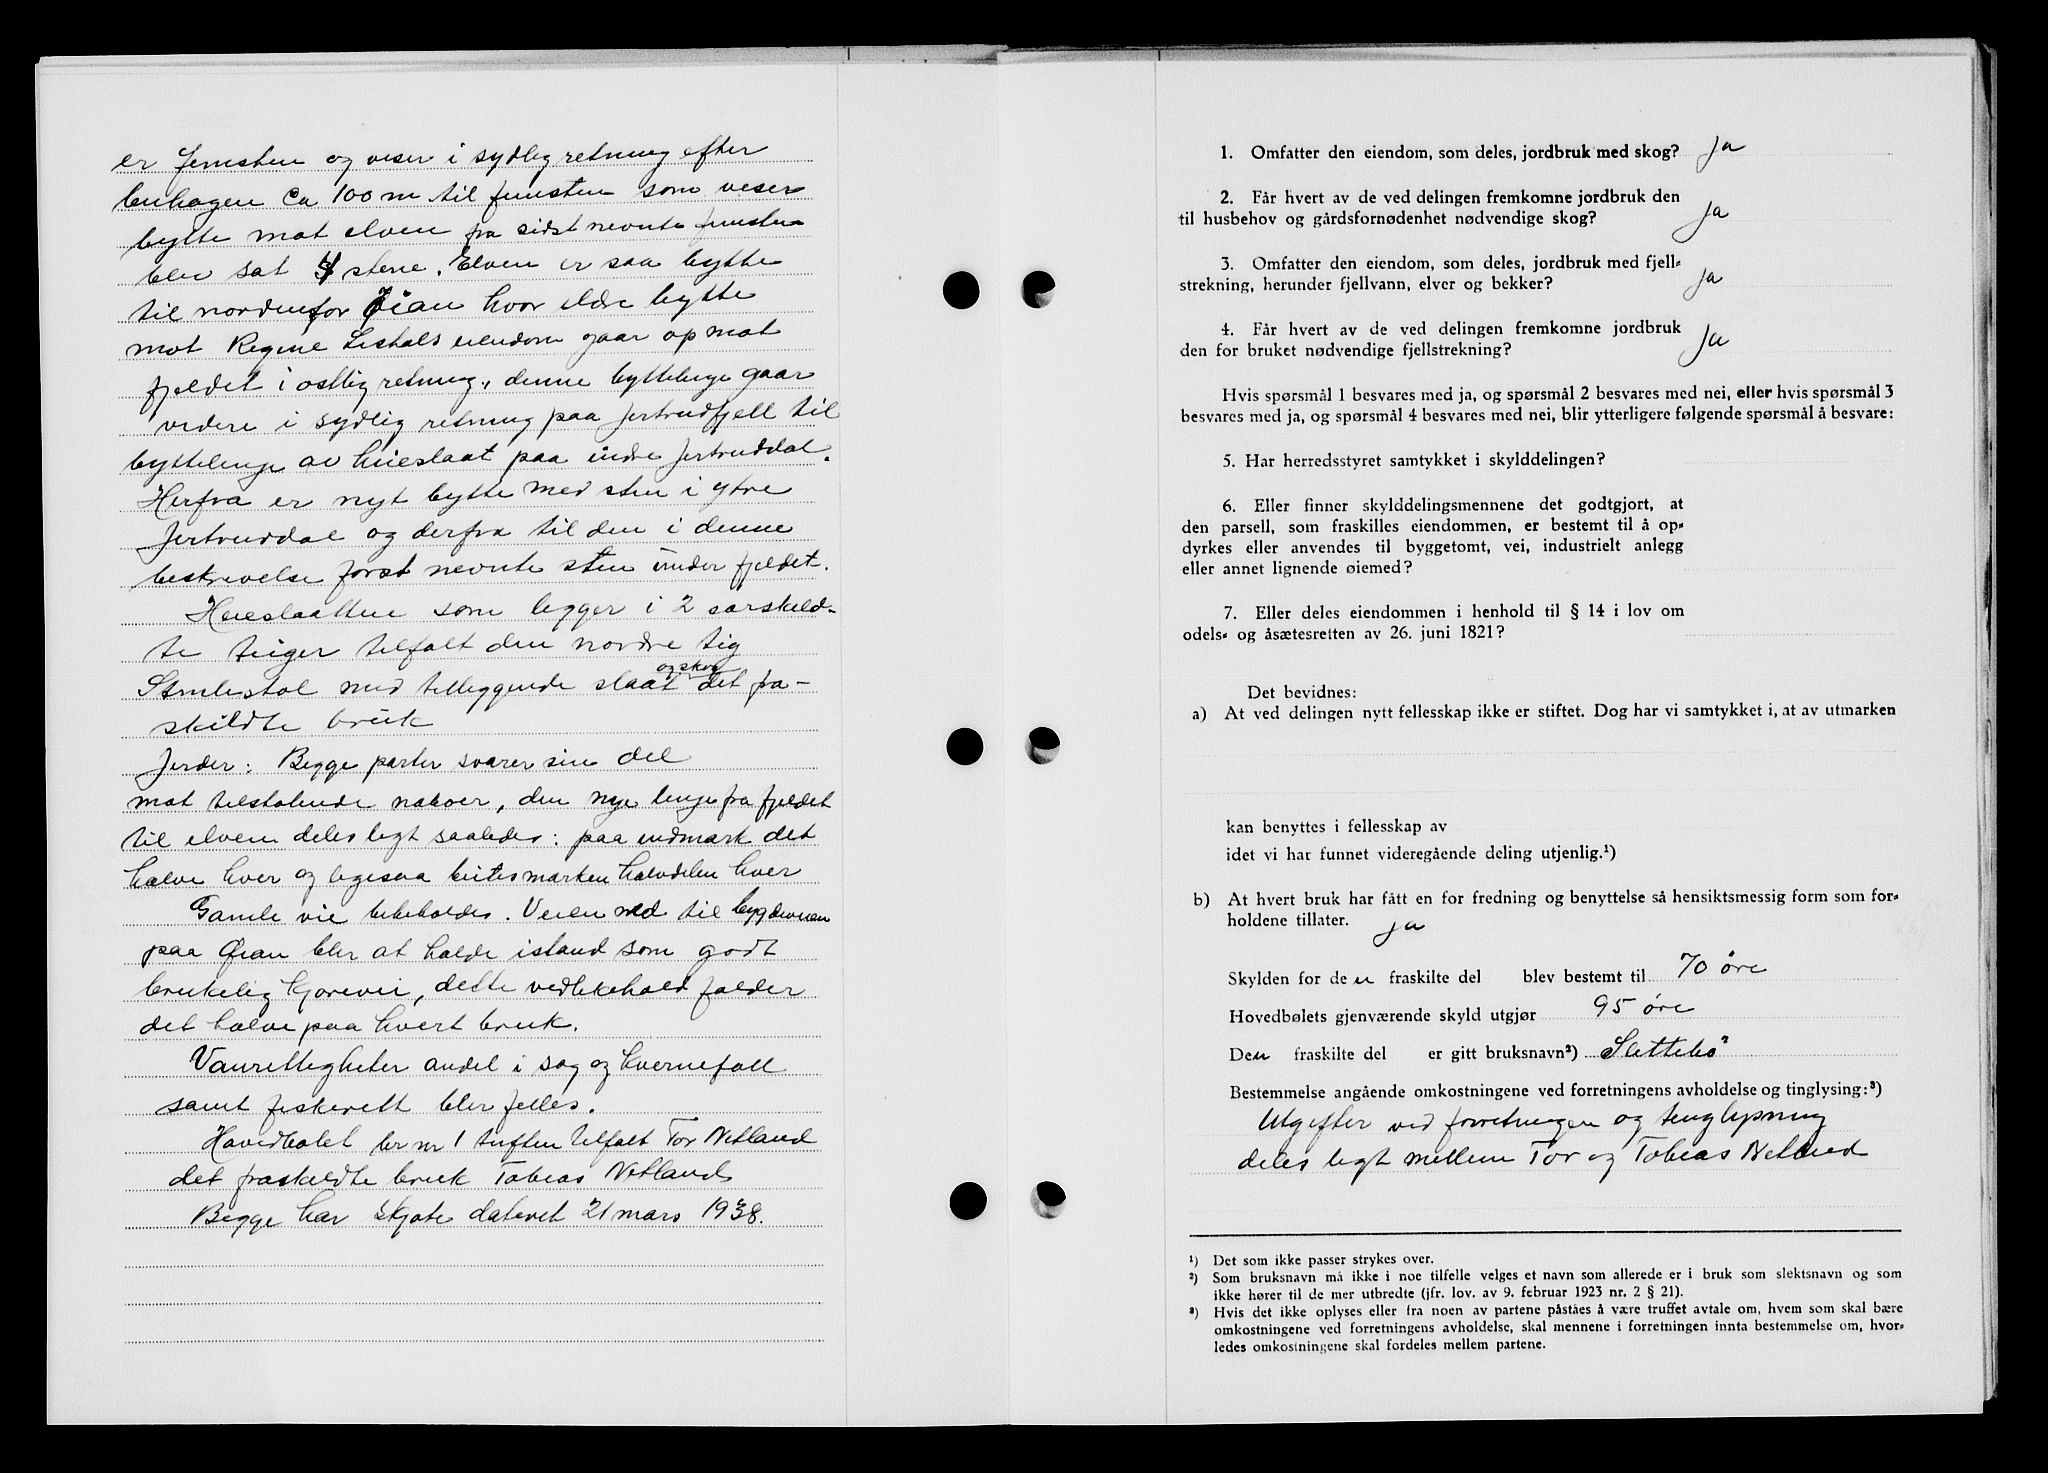 er femsten og viser i sydlig retning efter
ca 100 m til femsten som viser
bytte mot elven fra sidst nevnte femsten
blev sat 4 stene. Elven er saa bytte
til nordenfor Øian hvor eldre bytte
mot Regine Listøls eiendom gaar op mot
fjeldet i ostlig retning, denne byttelinge gaar
videre i sydlig retning paa Jertrudfjell til
byttelinge av heieslaat paa indre Jertruddal.
Herfra er nyt bytte med sten i ytre
Jertruddal og derfra til den i denne
beskrivelse først nevnte sten under fjeldet.
Heieslaatten som legger i 2 særskild-
te teiger tilfalt den nordre tig
med tilleggende slaat og skog det fra-
skildte bruk
Jerder: Begge parter svarer sin del
mot tilstøtende naboer, den nye linge fra fjeldet
til elven deles ligt saaledes: paa indmark det
halve hver og ligesaa halvdelen hver
Gamle vie bibeholdes. Veien ned til bygdeveien
paa Øian blir at holde istand som godt
brukelig kjørevei, dette vedlikehold falder
det halve paa hvert bruk.
Vanrettigheter andel i sag og kvernefall
samt fiskerett blir felles.
Hovedbølet br nr 1 tuften tilfalt Tor Netland
det fraskildte bruk Tobias Netland
Begge har Skjøte datert 21 mars 1938.
1. Omfatter den eiendom, som deles, jordbruk med skog? Ja
2. Får hvert av de ved delingen fremkomne jordbruk den
til husbehov og gårdsfornødenhet nødvendige skog? Ja
3. Omfatter den eiendom, som deles, jordbruk med fjell-
strekning, herunder fjellvann, elver og bekker? Ja
4. Får hvert av de ved delingen fremkomne jordbruk
den for bruket nødvendige fjellstrekning? Ja
Hvis spørsmål 1 besvares med ja, og spørsmål 2 besvares med nei, eller hvis spørsmål 3
besvares med ja, og spørsmål 4 besvares med nei, blir ytterligere følgende spørsmål å besvare:
5. Har herredsstyret samtykket i skylddelingen?
6. Eller finner skylddelingsmennene det godtgjort, at
den parsell, som fraskilles eiendommen, er bestemt til å op-
dyrkes eller anvendes til byggetomt, vei, industrielt anlegg
eller annet lignende øiemed?
7. Eller deles eiendommen i henhold til § 14 i lov om
odels- og åsætesretten av 26. juni 1821?
Det bevidnes:
a) At ved delingen nytt fellesskap ikke er stiftet. Dog har vi samtykket i, at av utmarken
kan benyttes i fellesskap av
idet vi har funnet videregående deling utjenlig.¹)
b) At hvert bruk har fått en for fredning og benyttelse så hensiktsmessig form som for-
holdene tillater. Ja
Skylden for den fraskilte del blev bestemt til 70 øre
Hovedbølets gjenværende skyld utgjør 95 øre
Den fraskilte del er gitt bruksnavn²) Slettebø
Bestemmelse angående omkostningene ved forretningens avholdelse og tinglysing:³)
Utgifter ved forretningen og tinglysning
deles ligt mellem Tor og Tobias Netland
¹) Det som ikke passer strykes over.
²) Som bruksnavn må ikke i noe tilfelle velges et navn som allerede er i bruk som slektsnavn og som
ikke hører til de mer utbredte (jfr. lov. av 9. februar 1923 nr. 2 § 21).
³) Hvis det ikke oplyses eller fra noen av partene påståes å være truffet avtale om, hvem som skal bære
omkostningene ved forretningens avholdelse, skal mennene i forretningen innta bestemmelse om, hvor-
ledes omkostningene skal fordeles mellem partene.